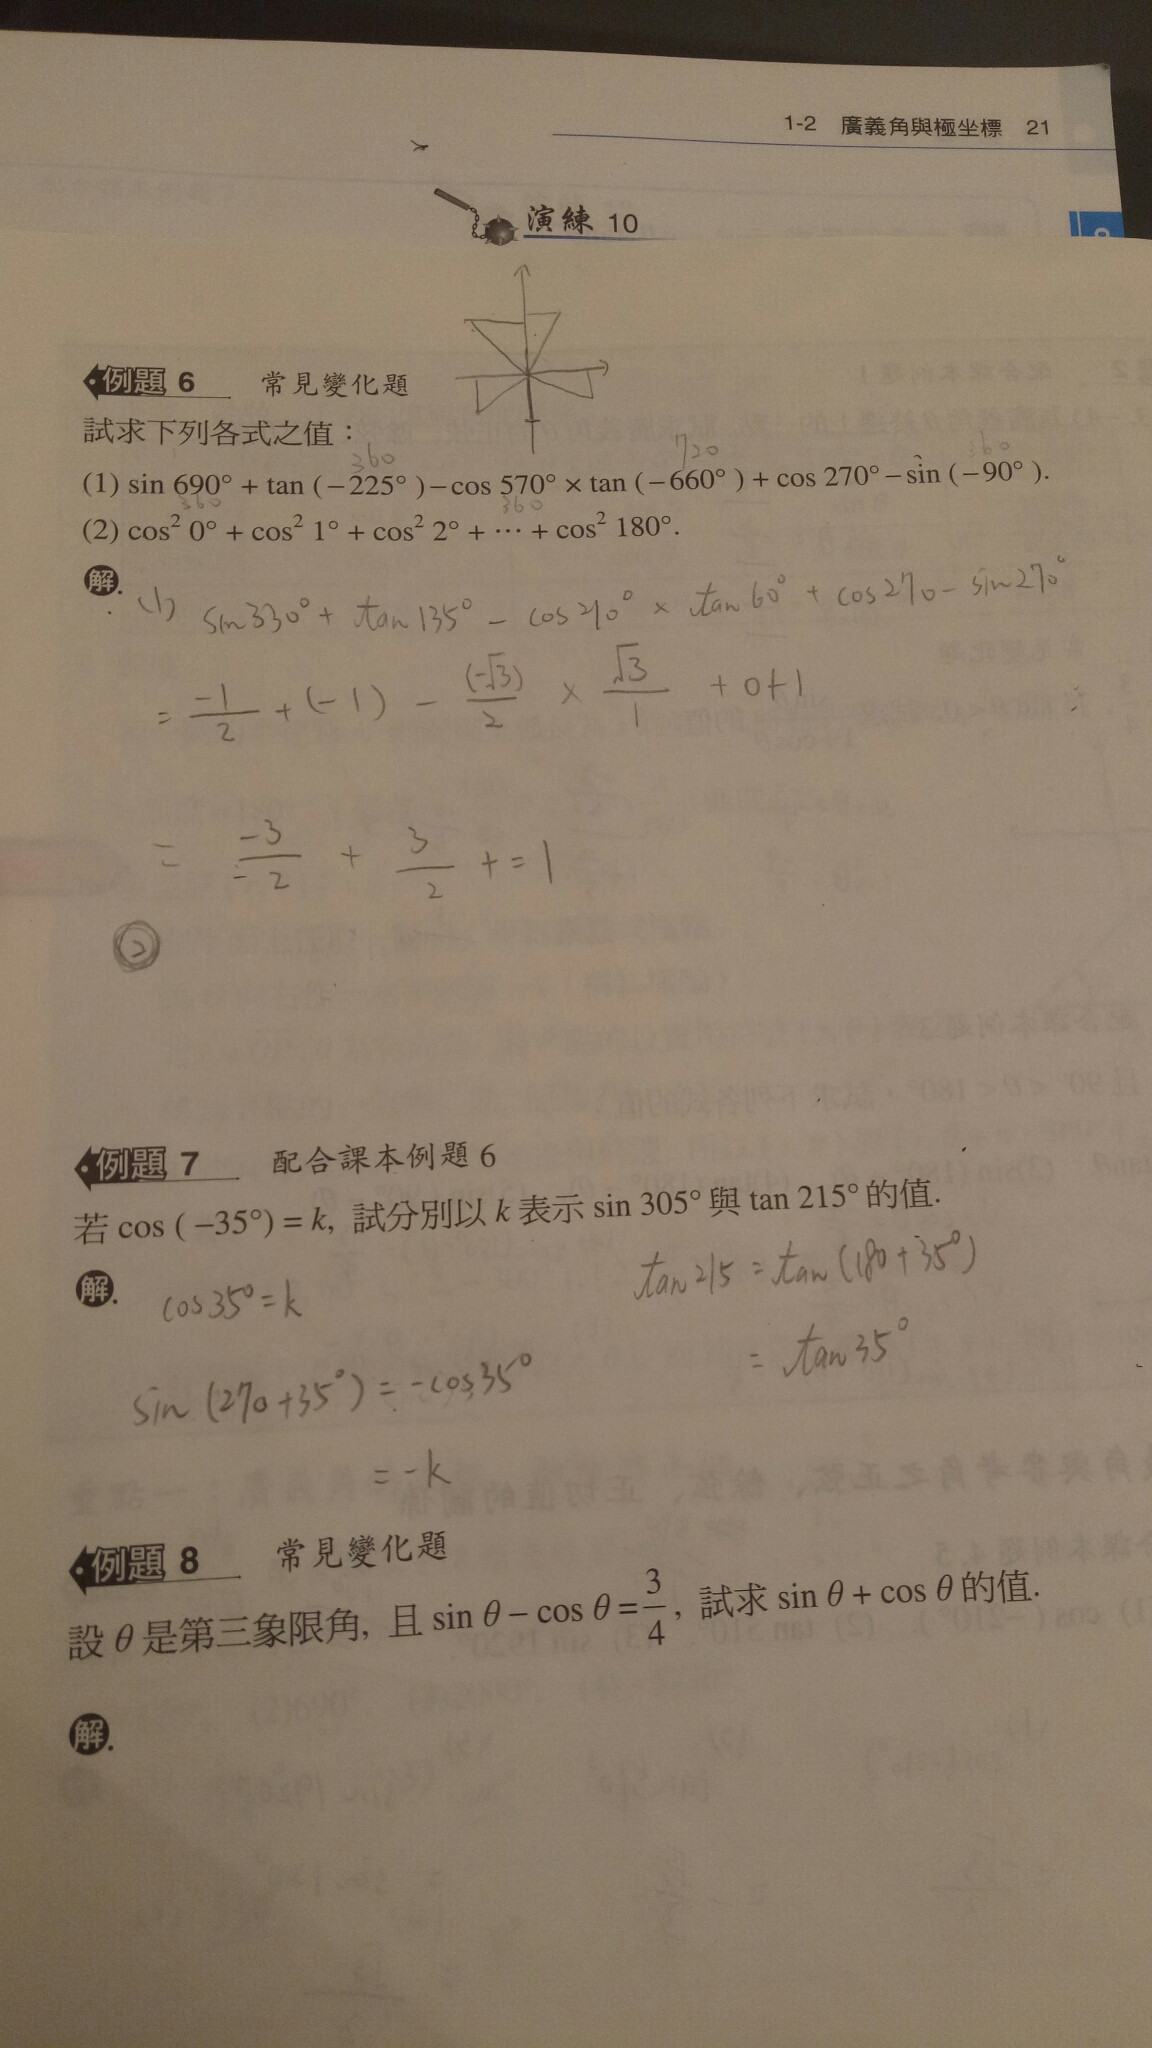 1-2 廣義角與極坐標 21
演練 10
例題 6 常見變化題
試求下列各式之值：
360 720 360
(1) sin 690° + tan (−225°) − cos 570° × tan (−660°) + cos 270° − sin (−90°).
360 360
(2) cos² 0° + cos² 1° + cos² 2° + ⋯ + cos² 180°.
解.
(1) sin330° + tan135° − cos210° × tan60° + cos270 − sin270°
= -1/2 + (-1) − (-√3)/2 × √3/1 + 0+1
= -3/2 + 3/2 + = 1
2
例題 7 配合課本例題 6
若 cos (−35°) = k, 試分別以 k 表示 sin 305° 與 tan 215° 的值.
解. cos35° = k tan215 = tan(180+35°)
= tan35°
sin(270+35°) = -cos35°
= -k
例題 8 常見變化題
設 θ 是第三象限角, 且 sin θ − cos θ = 3/4, 試求 sin θ + cos θ 的值.
解.